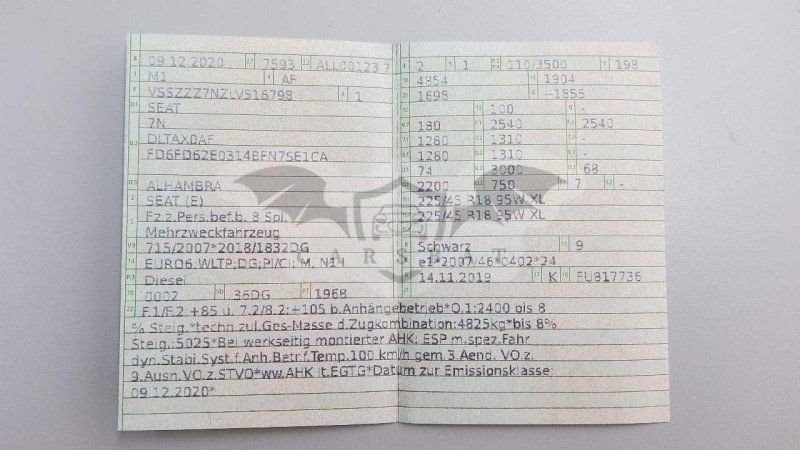 09.12.2020 7593 ALL00123 7
M1 AF
VSSZZZ7NZLV516798 1
SEAT
7N
DLTAX0AF
FD6FD62E0314BFN7SE1CA
ALHAMBRA
SEAT (E)
Fz.z.Pers.bef.b. 8 Spl.
Mehrzweckfahrzeug
715/2007*2018/1832DG
EURO6;WLTP;DG;PI/CI; M, N1 I
Diesel
0002 36DG 1968
2 1 110/3500 198
4854 1904
1698 --1855
100 -
180 2540 2540
1280 1310 -
1280 1310 -
74 3000 68
2200 750 7 -
225/45 R18 95W XL
225/45 R18 95W XL
Schwarz 9
e1*2007/46*0402*24
14.11.2019 K FU817736
F.1/F.2:+85 u. 7.2/8.2:+105 b.Anhängebetrieb*O.1:2400 bis 8
% Steig.*techn.zul.Ges-Masse d.Zugkombination:4825kg*bis 8%
Steig.:5025*Bei werkseitig montierter AHK: ESP m.spez.Fahr
dyn.Stabi.Syst.f.Anh.Betr.f.Temp.100 km/h gem.3.Aend. VO.z.
9.Ausn.VO.z.STVO*ww.AHK lt.EGTG*Datum zur Emissionsklasse:
09.12.2020*